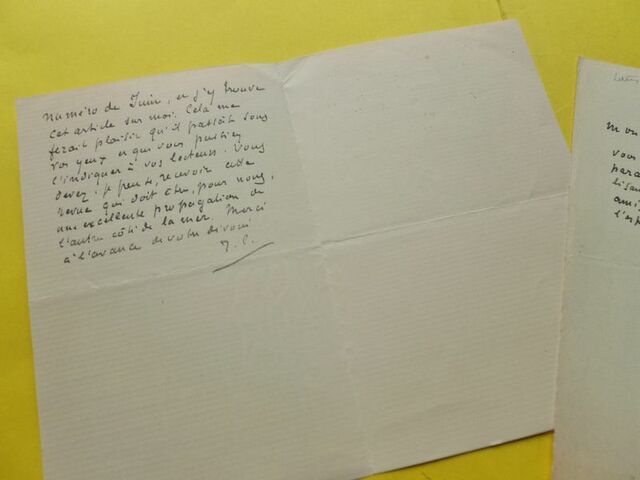 numéro de Juin, et j'y trouve
cet article sur moi. Cela me
ferait plaisir qu'il passât sous
vos yeux et que vous puissiez
l'indiquer à vos lecteurs. Vous
devez, je pense, recevoir cette
revue qui doit être, pour nous,
une excellente propagation de
l'autre côté de la mer. Merci
à l'avance de votre dévoué
J. C.
mon
vous
para
lisan
ami,
l'esp